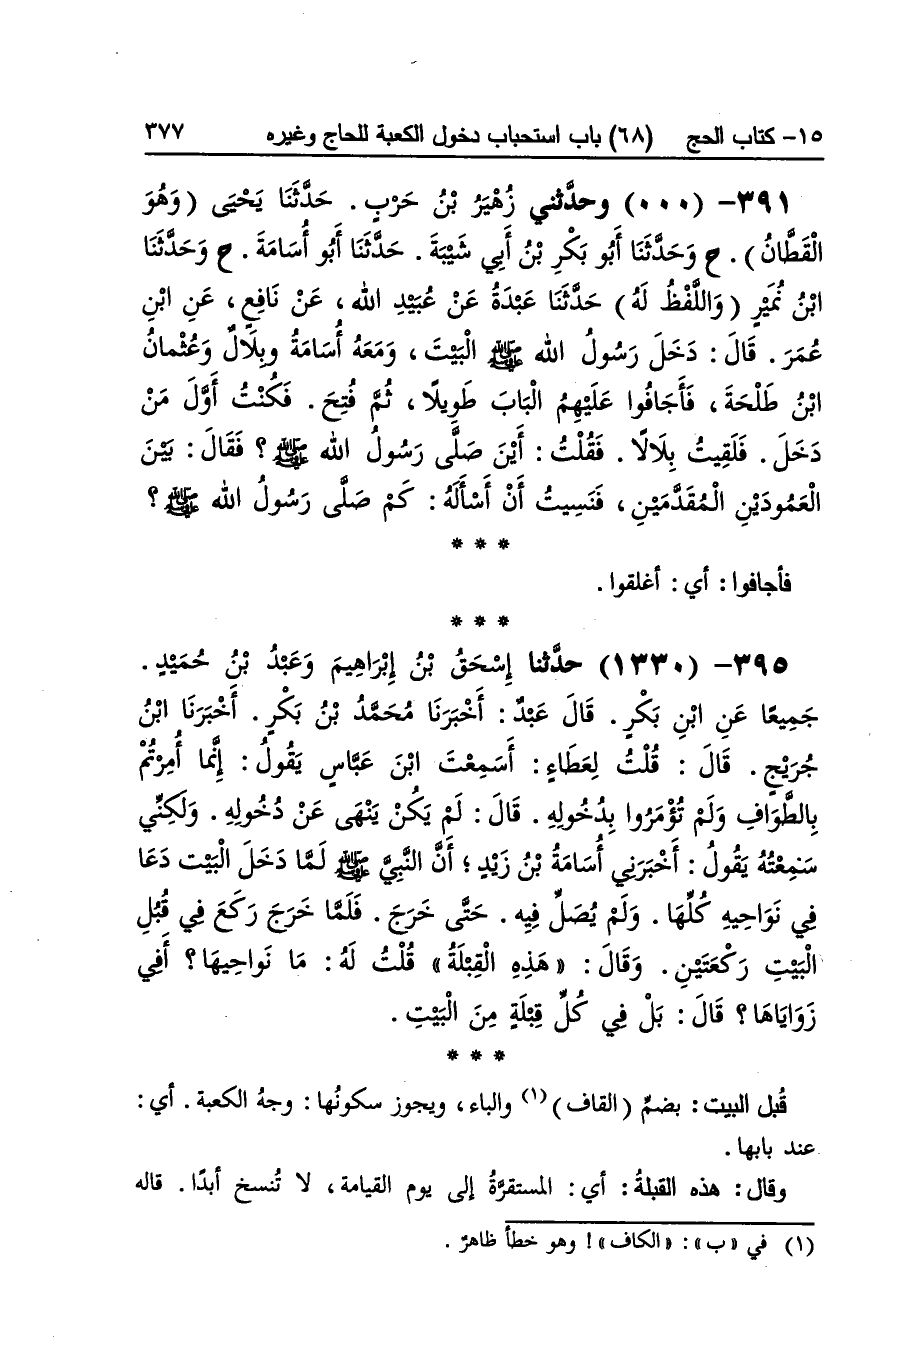 ١٥- كتاب الحج (٦٨) باب استحباب دخول الكعبة للحاج وغيره ٣٧٧
٣٩١- (٠٠٠) وحدَّثني زُهَيْرُ بْنُ حَرْبٍ. حَدَّثَنَا يَحْيَى (وَهُوَ
الْقَطَّانُ). ح وَحَدَّثَنَا أَبُو بَكْرِ بْنُ أَبِي شَيْبَةَ. حَدَّثَنَا أَبُو أُسَامَةَ. ح وَحَدَّثَنَا
ابْنُ نُمَيْرٍ (وَاللَّفْظُ لَهُ) حَدَّثَنَا عَبْدَةُ عَنْ عُبَيْدِ الله، عَنْ نَافِعٍ، عَنِ ابْنِ
عُمَرَ. قَالَ: دَخَلَ رَسُولُ الله ﷺ الْبَيْتَ، وَمَعَهُ أُسَامَةُ وبِلَالٌ وَعُثْمانُ
ابْنُ طَلْحَةَ، فَأَجَافُوا عَلَيْهِمُ الْبَابَ طَوِيلًا، ثُمَّ فُتِحَ. فَكُنْتُ أَوَّلَ مَنْ
دَخَلَ. فَلَقِيتُ بِلَالًا. فَقُلْتُ: أَيْنَ صَلَّى رَسُولُ الله ﷺ؟ فَقَالَ: بَيْنَ
الْعَمُودَيْنِ الْمُقَدَّمَيْنِ، فَنَسِيتُ أَنْ أَسْأَلَهُ: كَمْ صَلَّى رَسُولُ الله ﷺ؟
* * *
فأجافوا: أي: أغلقوا.
* * *
٣٩٥- (١٣٣٠) حدَّثنا إِسْحَقُ بْنُ إِبْرَاهِيمَ وَعَبْدُ بْنُ حُمَيْدٍ.
جَمِيعًا عَنِ ابْنِ بَكْرٍ. قَالَ عَبْدٌ: أَخْبَرَنَا مُحَمَّدُ بْنُ بَكْرٍ. أَخْبَرَنَا ابْنُ
جُرَيْجٍ. قَالَ: قُلْتُ لِعَطَاءٍ: أَسَمِعْتَ ابْنَ عَبَّاسٍ يَقُولُ: إِنَّما أُمِرْتُمْ
بِالطَّوَافِ وَلَمْ تُؤْمَرُوا بِدُخُولِهِ. قَالَ: لَمْ يَكُنْ يَنْهَى عَنْ دُخُولِهِ. وَلَكِنِّي
سَمِعْتُهُ يَقُولُ: أَخْبَرَنِي أُسَامَةُ بْنُ زَيْدٍ؛ أَنَّ النَّبِيَّ ﷺ لَمَّا دَخَلَ الْبَيْت دَعَا
فِي نَوَاحِيهِ كُلِّهَا. وَلَمْ يُصَلِّ فِيه. حَتَّى خَرَجَ. فَلَمَّا خَرَجَ رَكَعَ فِي قُبُلِ
الْبَيْتِ رَكْعَتَيْنِ. وَقَالَ: «هَذِهِ الْقِبْلَةُ» قُلْتُ لَهُ: مَا نَواحِيهَا؟ أَفِي
زَوَايَاهَا؟ قَالَ: بَلْ فِي كُلِّ قِبْلَةٍ مِنَ الْبَيْتِ.
* * *
قُبل البيت: بضمِّ (القاف)(١) والباء، ويجوز سكونُها: وجهُ الكعبة. أي:
عند بابها.
وقال: هذه القبلةُ: أي: المستقرَّةُ إلى يوم القيامة، لا تُنسخ أبدًا. قاله
(١) في «ب»: «الكاف»! وهو خطأ ظاهرٌ.